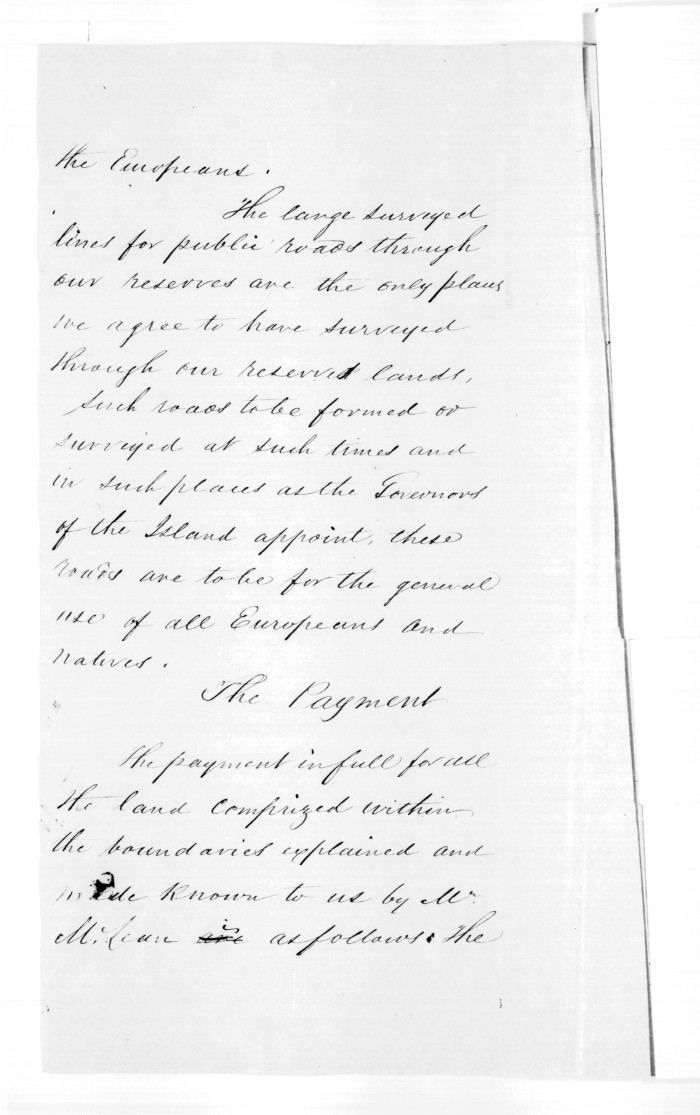 the Europeans.
The large surveyed
lines for public roads through
our reserves are the only places
we agree to have surveyed
through our reserved lands,
such roads to be formed or
surveyed at such times and
in such places as the Governors
of the Island appoint, these
roads are to be for the general
use of all Europeans and
natives.
The Payment
The payment in full for all
the land comprized within
the boundaries explained and
made known to us by Mr.
McLean are is as follows. The